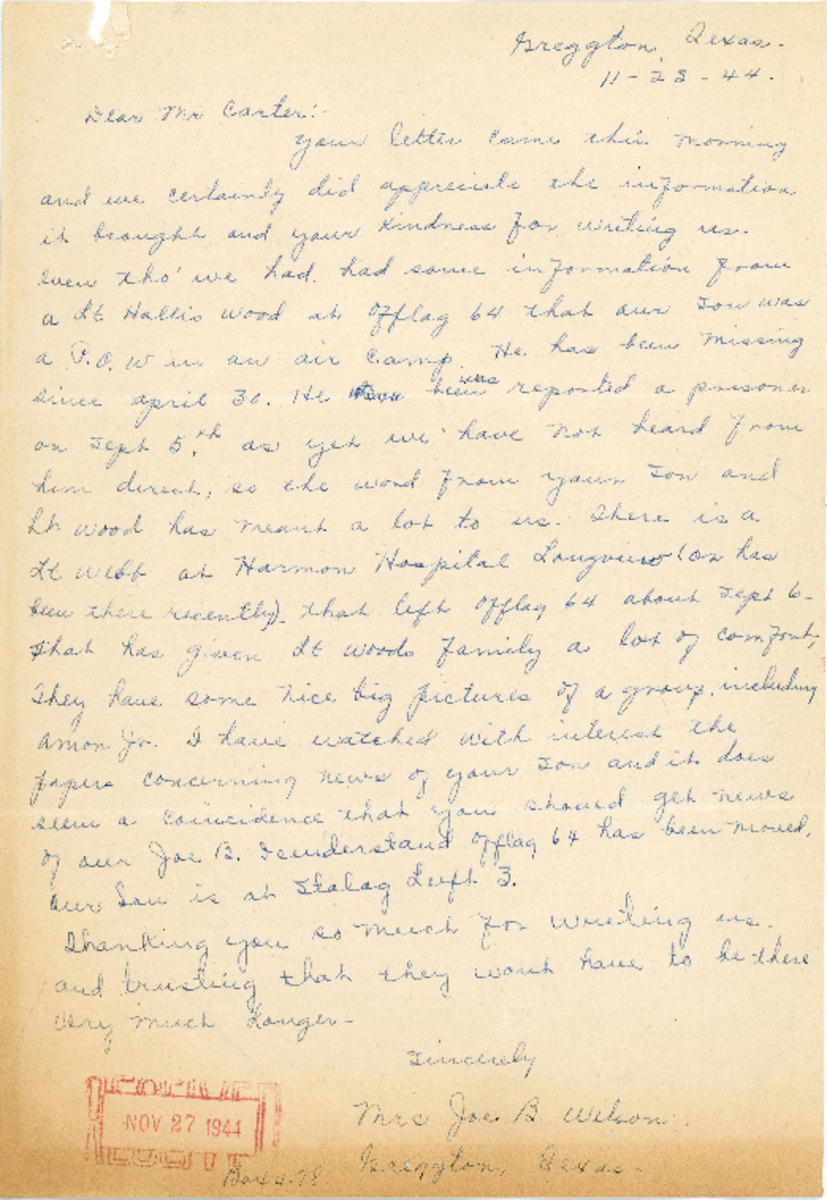 Greggton, Texas -
11-23-44.
Dear Mr Carter:-
Your letter came this morning
and we certainly did appreciate the information
it brought and your kindness for writing us.
Even tho' we had had some information from
a Lt Hallis Wood at Offlag 64 that our son was
a P.O.W in an air camp. He has been missing
since april 30. He was reported a prisoner
on Sept 5th. as yet we have not heard from
him direct, so the word from your son and
Lt Wood has meant a lot to us. There is a
Lt Webb at Harmon Hospital Longview (or has
been there recently). that left offlag 64 about Sept 6-
that has given Lt Woods family a lot of comfort,
They have some nice big pictures of a group, including
Amon Jr. I have watched with interest the
papers concerning news of your son and it does
seem a coincidence that you should get news
of our Joe B. I understand offlag 64 has been moved,
Our Son is at Stalag Luft 3.
Thanking you so much for writing us.
and trusting that they wont have to be there
very much longer -
Sincerely
Mrs Joe B. Wilson.
Greggton, Texas -
NOV 27 1944